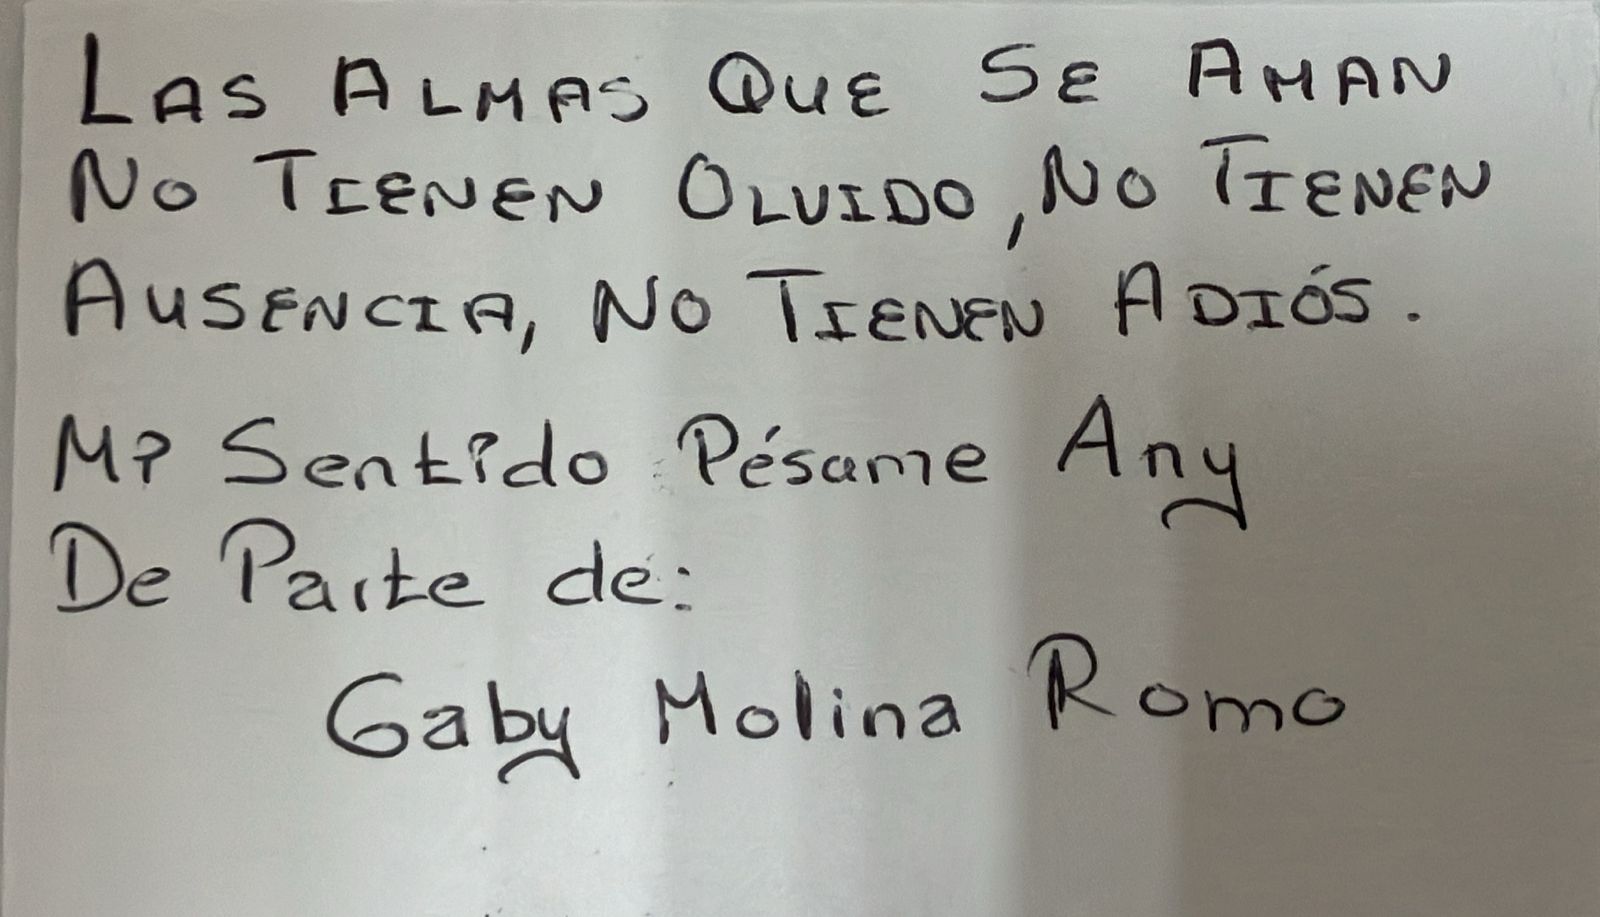 LAS ALMAS QUE SE AMAN
NO TIENEN OLVIDO, NO TIENEN
AUSENCIA, NO TIENEN ADIÓS.
Mi Sentido Pésame Any
De Parte de:
Gaby Molina Romo